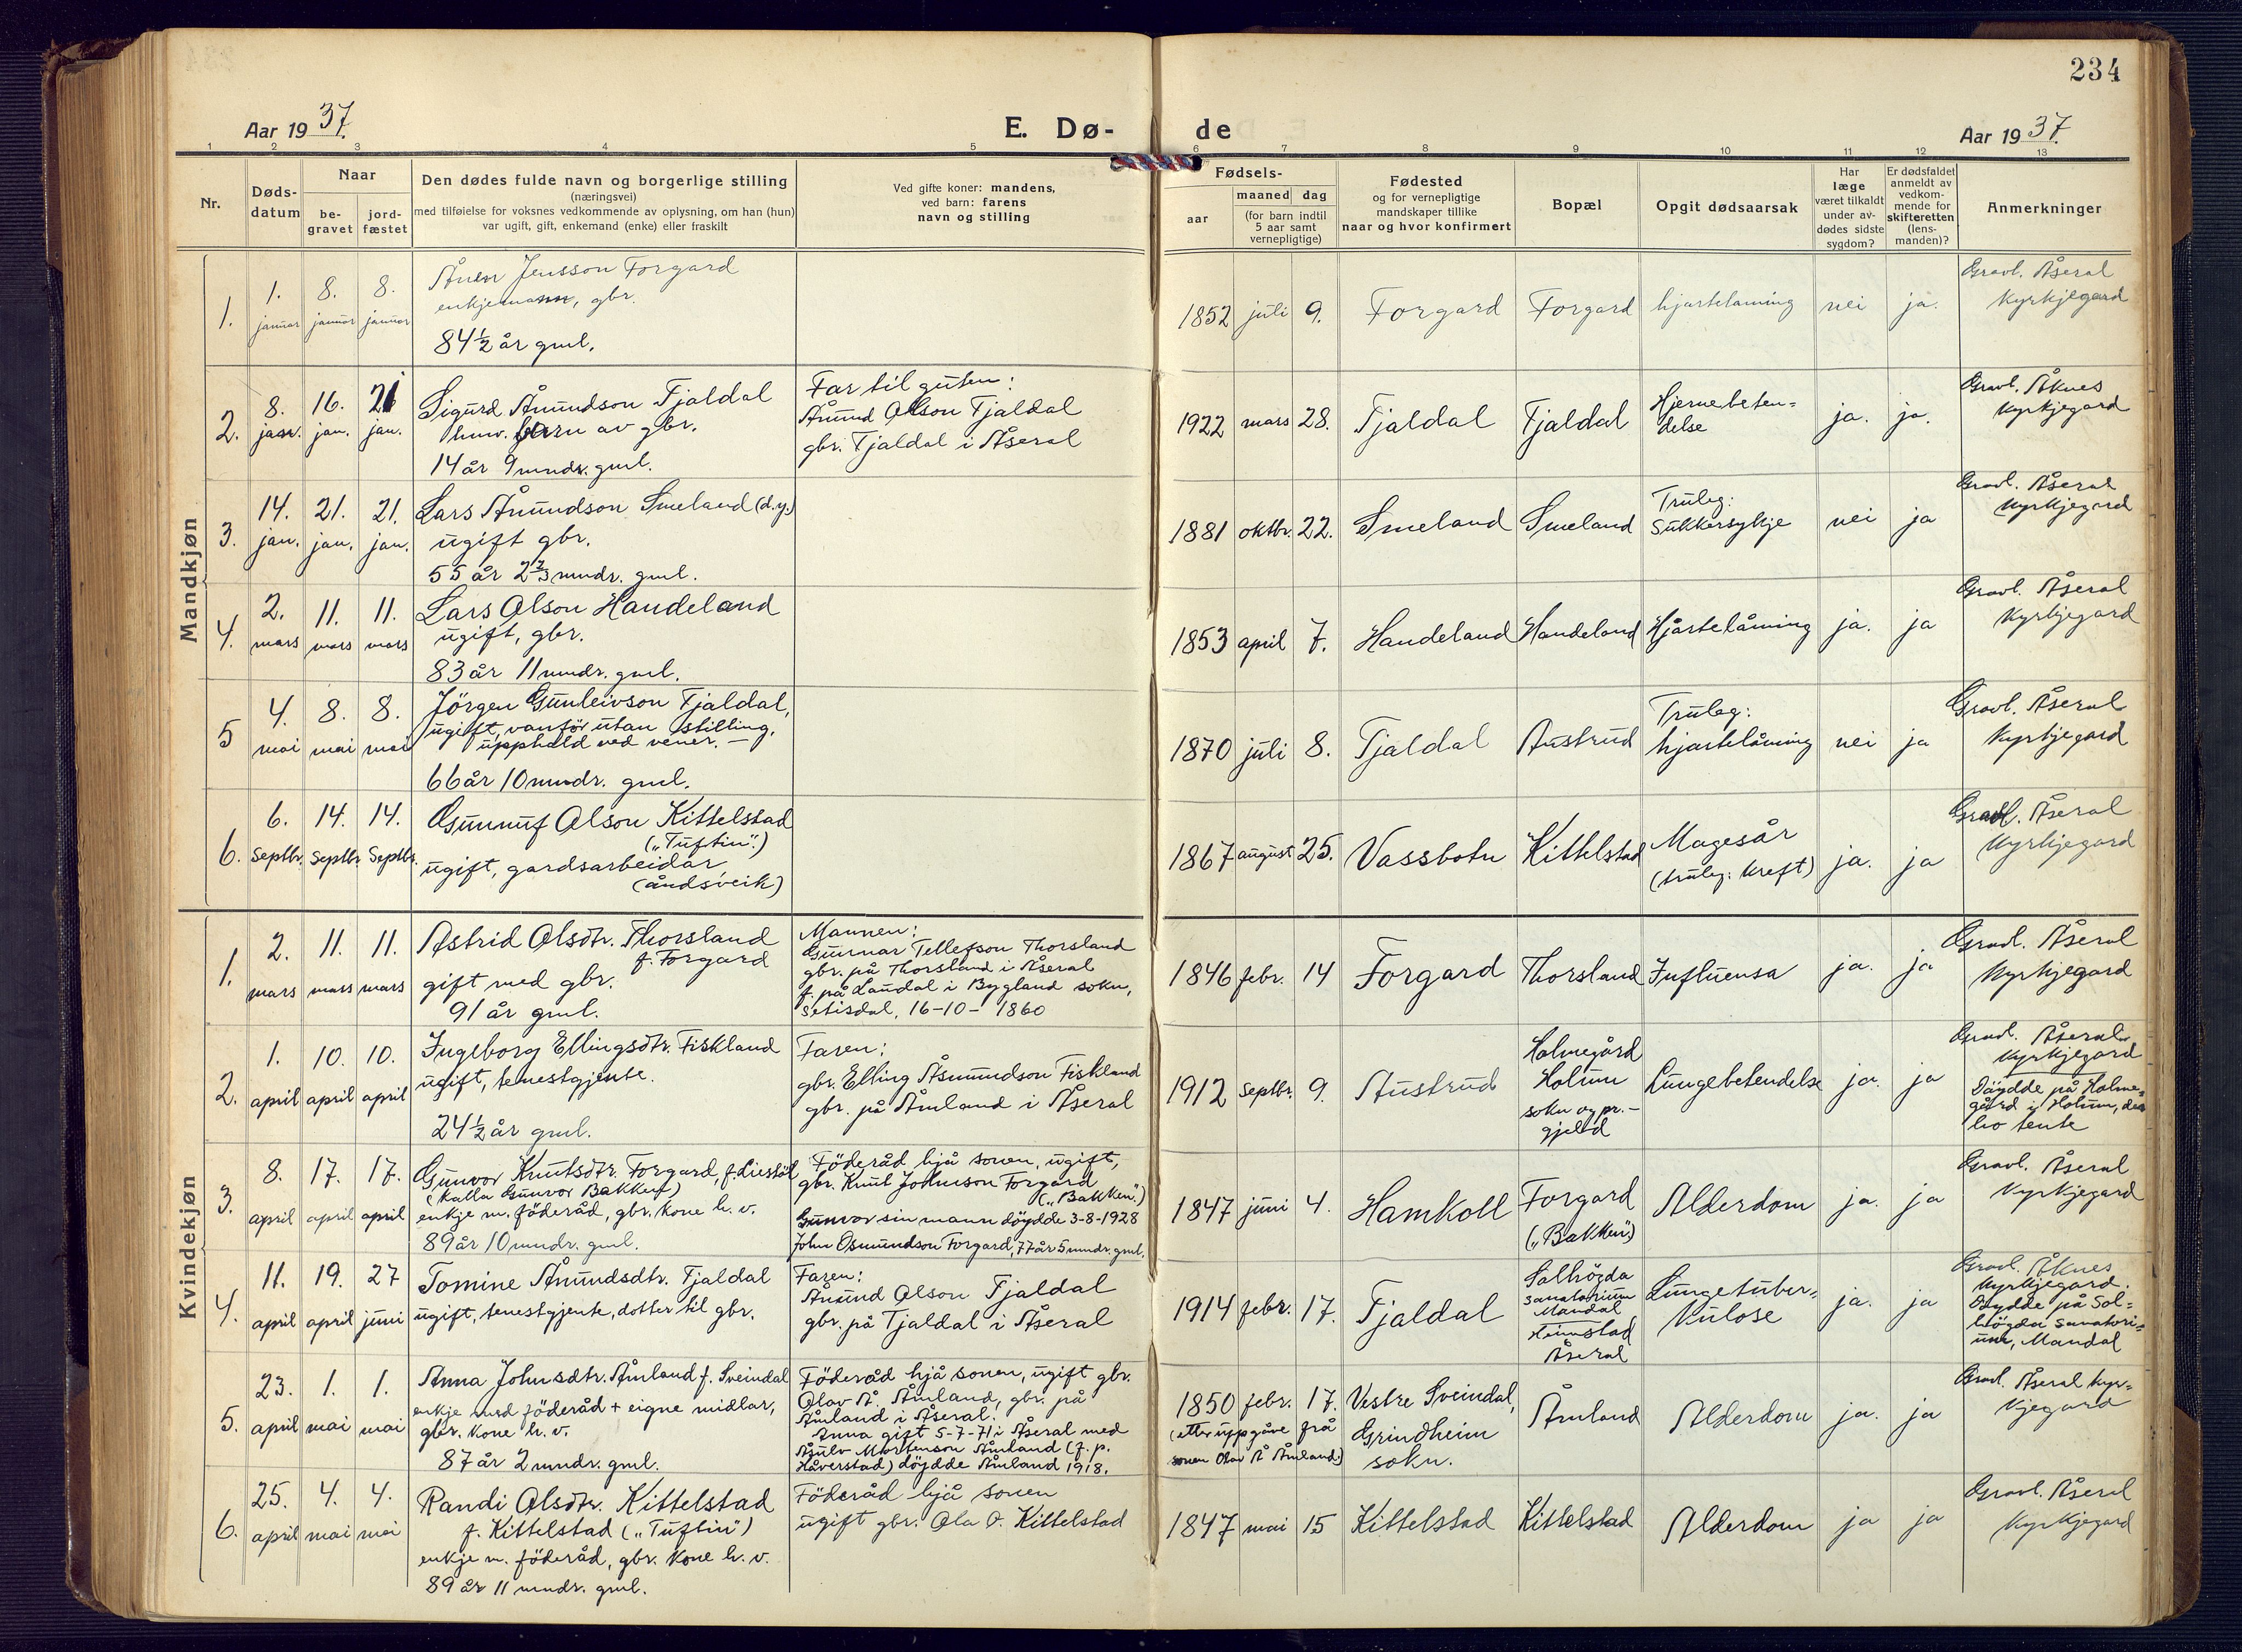 234
Aar 1937.
E. Dø-
de
Aar 1937.
1 2 3 4 5 6 7 8 9 10 11 12 13
Nr.
Døds-
datum
Naar
be-
gravet
jord-
fæstet
Den dødes fulde navn og borgerlige stilling
(næringsvei)
med tilføielse for voksnes vedkommende av oplysning, om han (hun)
var ugift, gift, enkemand (enke) eller fraskilt
Ved gifte koner: mandens,
ved barn: farens
navn og stilling
Fødsels-
aar
maaned dag
(for barn indtil
5 aar samt
vernepligtige)
Fødested
og for vernepligtige
mandskaper tillike
naar og hvor konfirmert
Bopæl
Opgit dødsaarsak
Har
læge
været tilkaldt
under av-
dødes sidste
sygdom?
Er dødsfaldet
anmeldt av
vedkom-
mende for
skifteretten
(lens-
manden)?
Anmerkninger
Mandkjøn
1.
1.
januar
8.
januar
8.
januar
Ånen Jensson Forgard
enkjemann, gbr.
84½ år gml.
1852 juli 9.
Forgard
Forgard
hjartelaming
nei
ja.
Gravl. Åseral
Kyrkjegard
2.
8.
jan.
16.
jan.
21
jan.
Sigurd Ånundson Tjaldal
hmv. barn av gbr.
14 år 9 mndr. gml.
Far til guten:
Ånund Olson Tjaldal
gbr. Tjaldal i Åseral
1922 mars 28.
Tjaldal
Tjaldal
Hjernebeten=
delse
ja.
ja.
Gravl. Åknes
Kyrkjegard
3.
14.
jan.
21.
jan.
21.
jan.
Lars Ånundson Smeland (d.y.)
ugift gbr.
55 år 2⅔ mndr. gml.
1881 oktbr. 22.
Smeland
Smeland
Truleg:
Sukkersykje
nei
ja
Gravl. Åseral
Kyrkjegard
4.
2.
mars
11.
mars
11.
mars
Lars Olson Handeland
ugift, gbr.
83 år 11 mndr. gml.
1853 april 7.
Handeland
Handeland
Hjartelåming
ja.
ja
Gravl. Åseral
Kyrkjegard
5
4.
mai
8.
mai
8.
mai
Jörgen Gunleivson Tjaldal,
ugift, vanför utan stilling,
upphald ved vener. —
66 år 10 mndr. gml.
1870 juli 8.
Tjaldal
Austrud
Truleg:
hjartelåming
nei
ja
Gravl. Åseral
Kyrkjegard
6.
6.
Septbr.
14.
Septbr.
14.
Septbr.
Gunnuf Olson Kittelstad
(„Tuftin".)
ugift, gardsarbeidar
(åndsveik)
1867 august 25.
Vassbotn
Kittelstad
Magesår
(truleg: kreft)
ja.
ja
Gravl. Åseral
Kyrkjegard
Kvindekjøn
1.
2.
mars
11.
mars
11.
mars
Astrid Olsdtr. Thorsland
f. Forgard
gift med gbr.
91 år gml.
Mannen:
Gunnar Tellefson Thorsland
gbr. på Thorsland i Åseral
f. på Laudal i Bygland sokn,
Setisdal, 16-10- 1860
1846 febr. 14
Forgard
Thorsland
Influensa
ja.
ja
Gravl. Åseral
Kyrkjegard
2.
1.
april
10.
april
10.
april
Ingeborg Ellingsdtr. Fiskland
ugift, tenestgjente.
24½ år gml.
Faren:
gbr. Elling Åsmundson Fiskland
gbr. på Åmland i Åseral
1912 septbr. 9.
Austrud
Holmegård
Holum
sokn og pr.-
gjeld
Lungebetendelse
ja.
ja
Gravl. Åseral
Kyrkjegard
Döydde på Holme=
gård i Holum, der
ho tente
3.
8.
april
17.
april
17.
april
Gunvor Knutsdtr. Forgard, f. Liestöl
(kalla Gunvor Bakken)
enkje m. föderåd, gbr. kone h. v.
89 år 10 mndr. gml.
Föderåd hjå sonen, ugift,
gbr. Knut Johnson Forgard
(„Bakken".)
Gunvor sin mann döydde 3-8-1928
John Osmundson Forgard, 77 år 5 mndr. gml.
1847 juni 4.
Hamkoll
Forgard
(„Bakken")
Alderdom
ja.
ja
Gravl. Åseral
Kyrkjegard
4.
11.
april
19.
april
27
juni
Tomine Ånundsdtr. Tjaldal
ugift, tenestgjente, dotter til gbr.
Faren:
Ånund Olson Tjaldal
gbr. på Tjaldal i Åseral
1914 febr. 17.
Tjaldal
Solhögda
sanatorium
Mandal
Heimstad
Åseral
Lungetuber=
kulose
ja.
ja
Gravl. Åknes
Kyrkjegard.
Döydde på Sol=
högda sanatori=
um, Mandal
5.
23.
april
1.
mai
1.
mai
Anna Johnsdtr. Åmland f. Sveindal
enkje med föderåd + eigne midlar,
gbr. kone h. v.
87 år 2 mndr. gml.
Föderåd hjå sonen, ugift gbr.
Olav Å. Åmland, gbr. på
Åmland i Åseral.
Anna gift 5-7-71 i Åseral med
Åsulv Mortenson Åmland (f. p.
Håverstad) döydde Åmland 1918.
1850 febr. 17.
(etter uppgåve frå
sonen Olav Å Åmland)
Vestre Sveindal,
Grindheim
sokn.
Åmland
Alderdom
ja.
ja
Gravl. Åseral kyr=
kjegard
6.
25.
april
4.
mai
4.
mai
Randi Olsdtr. Kittelstad
f. Kittelstad („Tuftin")
enkje m. föderåd, gbr. kone h. v.
89 år 11 mndr. gml.
Föderåd hjå sonen
ugift gbr. Ola O. Kittelstad
1847 mai 15
Kittelstad
Kittelstad
Alderdom
ja
ja
Gravl. Åseral
Kyrkjegard